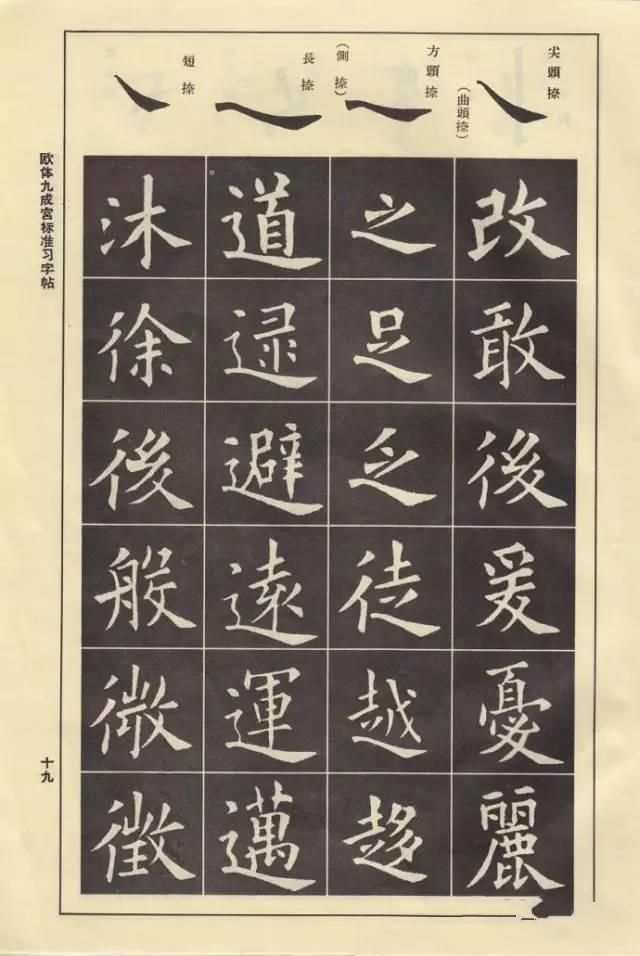 尖頭捺
(曲頭捺)
方頭捺
(側捺)
長捺
短捺
改敢後爰憂麗
之足乏徒越趍
道逯避遠運邁
沐徐後般微徵
欧体九成宮标准习字帖
十九